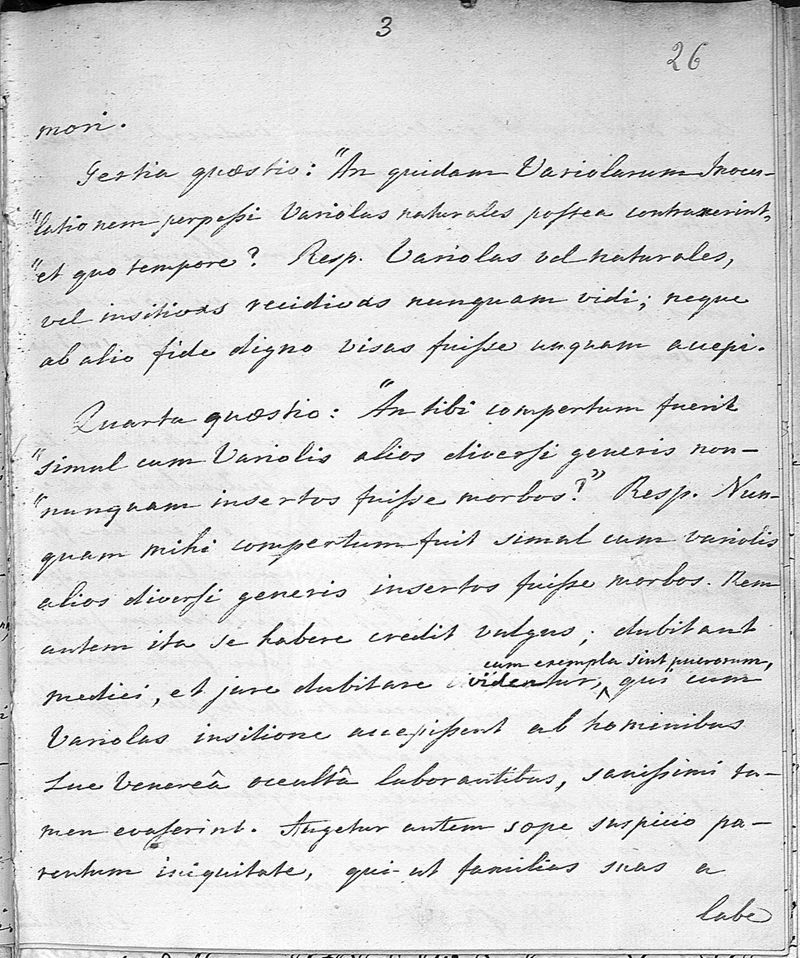 3
26
mori.
Tertia quæstio: "An quidam Variolarum Inocu-
"lationem perpessi Variolas naturales postea contraxerint,
"et quo tempore? Resp. Variolas vel naturales,
vel insitivas recidivas nunquam vidi; neque
ab alio fide digno visas fuisse unquam accepi.
Quarta quæstio: "An tibi compertum fuerit
"simul cum Variolis alios diversi generis non-
"nunquam insertos fuisse morbos?" Resp. Nun-
quam mihi compertum fuit simul cum variolis
alios diversi generis insertos fuisse morbos. Rem
autem ita se habere credit vulgus; dubitant
cum exempla sint puerorum,
medici, et jure dubitare videntur, ^ qui cum
Variolas insitione accepissent ab hominibus
Lue Venereâ occultâ laborantibus, sanissimi ta-
men evaserint. Augetur autem sæpe suspicio pa-
rentum iniquitate, qui ut familias suas a
labe